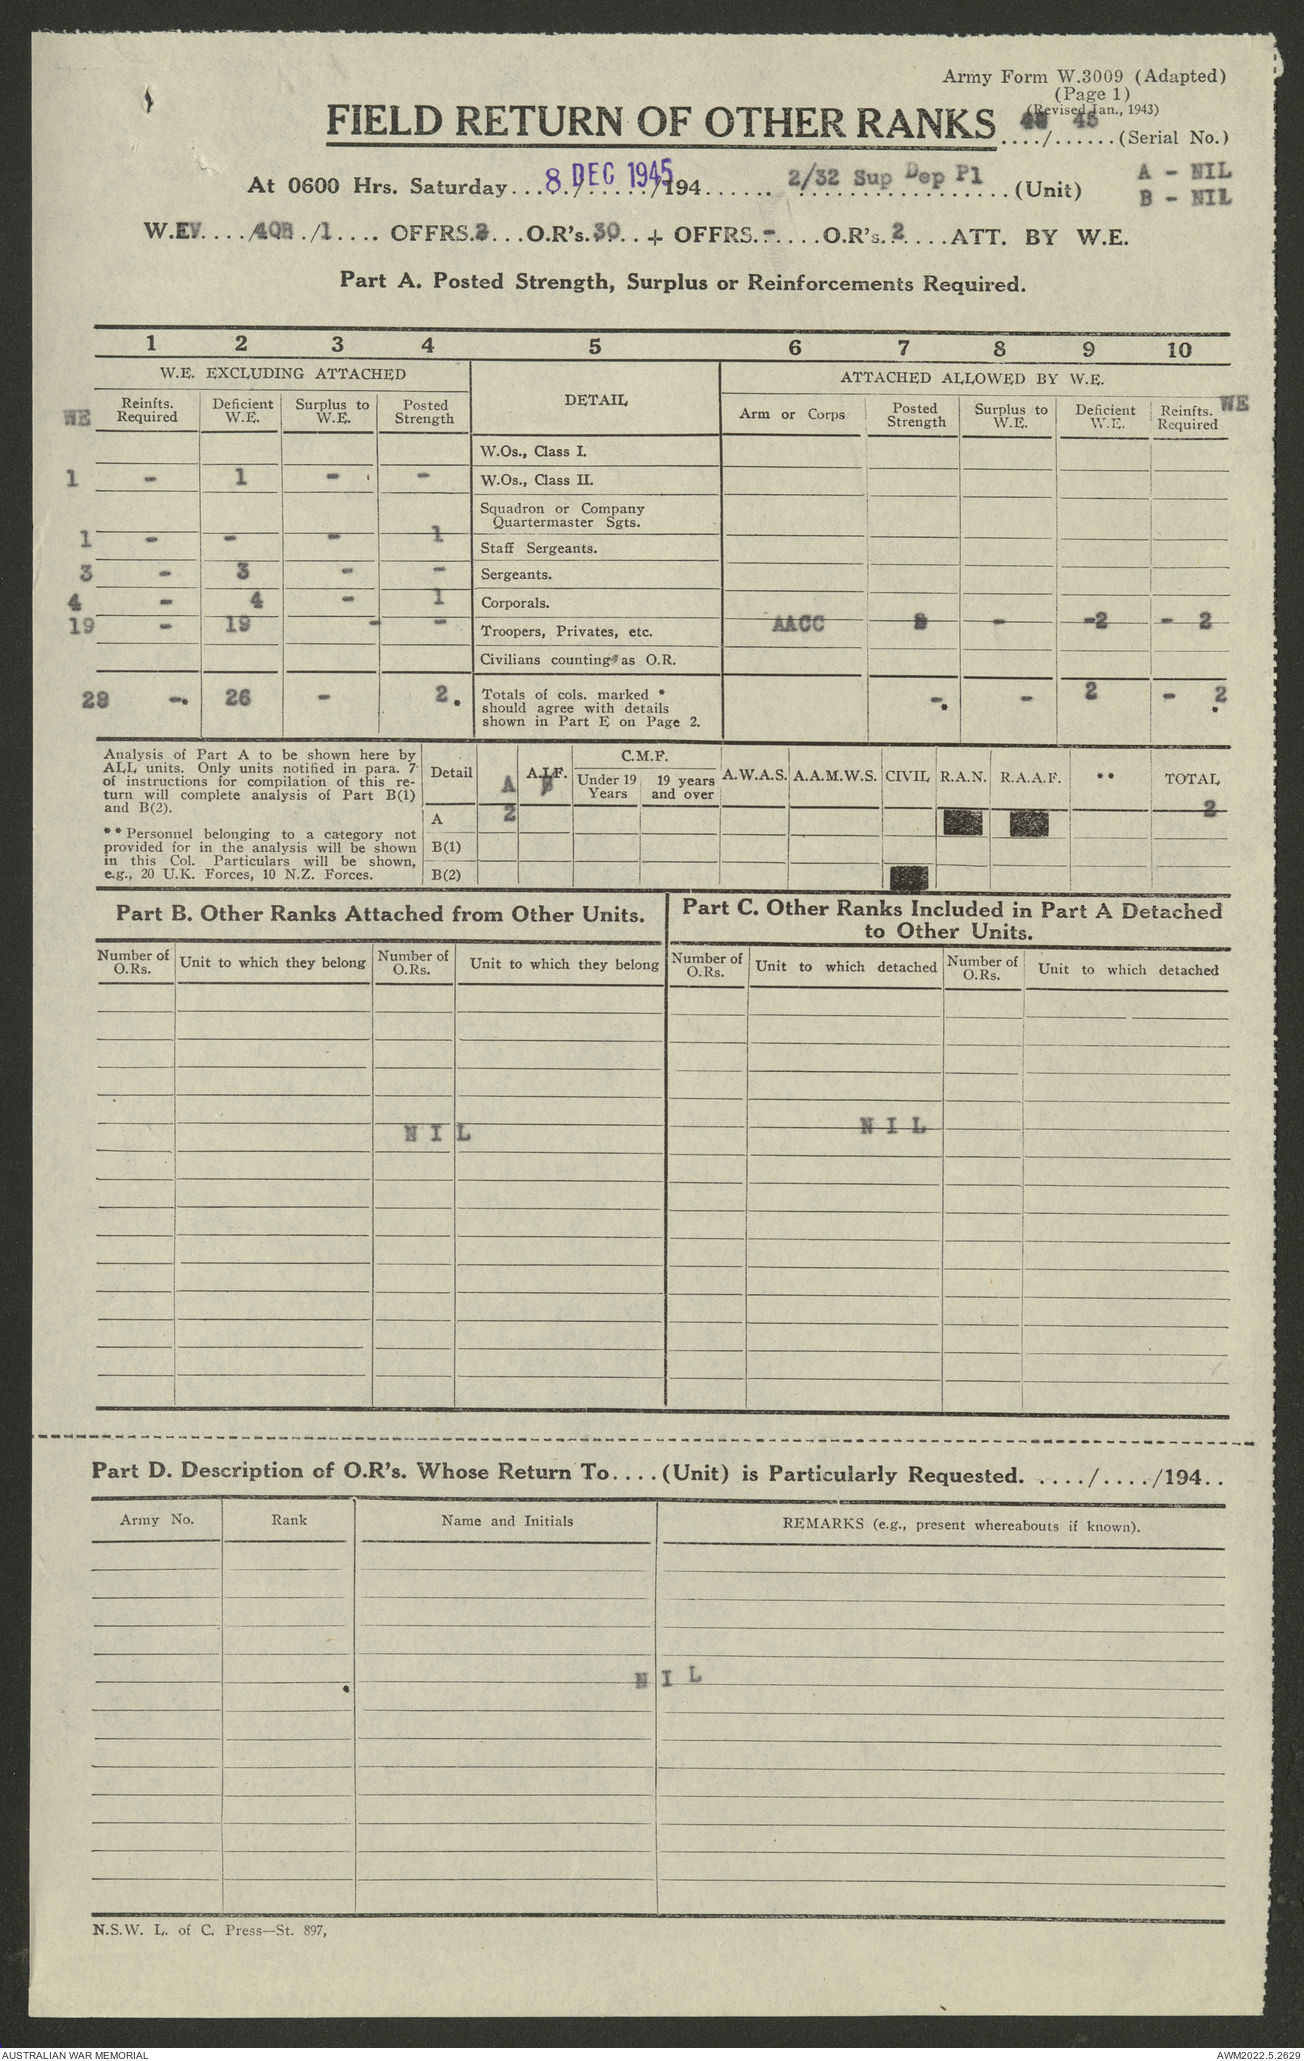 Army Form W.3009 (Adapted)
(Page 1)
(Revised Jan., 1943)
FIELD RETURN OF OTHER RANKS ..../...... (Serial No.)
45
At 0600 Hrs. Saturday... 8 DEC 1945 /194...... 2/32 Sup Dep Pl (Unit)
A - NIL
B - NIL
W.EV..../4QB ./1.... OFFRS. ...O.R's. 30 .. + OFFRS. - ....O.R's. 2 ....ATT. BY W.E.
Part A. Posted Strength, Surplus or Reinforcements Required.
1 2 3 4 5 6 7 8 9 10
W.E. EXCLUDING ATTACHED DETAIL ATTACHED ALLOWED BY W.E.
WE Reinfts. Required Deficient W.E. Surplus to W.E. Posted Strength Arm or Corps Posted Strength Surplus to W.E. Deficient W.E. Reinfts. Required WE
W.Os., Class I.
1 - 1 - - W.Os., Class II.
Squadron or Company
Quartermaster Sgts.
1 - - - 1 Staff Sergeants.
3 - 3 - - Sergeants.
4 - 4 - 1 Corporals.
19 - 19 - - Troopers, Privates, etc. AACC - -2 - 2
Civilians counting as O.R.
28 -. 26 - 2. Totals of cols. marked *
should agree with details
shown in Part E on Page 2. - - 2 - 2
Analysis of Part A to be shown here by
ALL units. Only units notified in para. 7
of instructions for compilation of this re-
turn will complete analysis of Part B(1)
and B(2).
** Personnel belonging to a category not
provided for in the analysis will be shown
in this Col. Particulars will be shown,
e.g., 20 U.K. Forces, 10 N.Z. Forces.
Detail A A.I.F. C.M.F. A.W.A.S. A.A.M.W.S. CIVIL R.A.N. R.A.A.F. ** TOTAL
Under 19 Years 19 years and over
A 2 2
B(1)
B(2)
Part B. Other Ranks Attached from Other Units.
Number of O.Rs. Unit to which they belong Number of O.Rs. Unit to which they belong
N I L
Part C. Other Ranks Included in Part A Detached
to Other Units.
Number of O.Rs. Unit to which detached Number of O.Rs. Unit to which detached
N I L
Part D. Description of O.R's. Whose Return To....(Unit) is Particularly Requested. ..../..../194..
Army No. Rank Name and Initials REMARKS (e.g., present whereabouts if known).
N I L
N.S.W. L. of C. Press—St. 897,
AUSTRALIAN WAR MEMORIAL AWM2022.5.2629